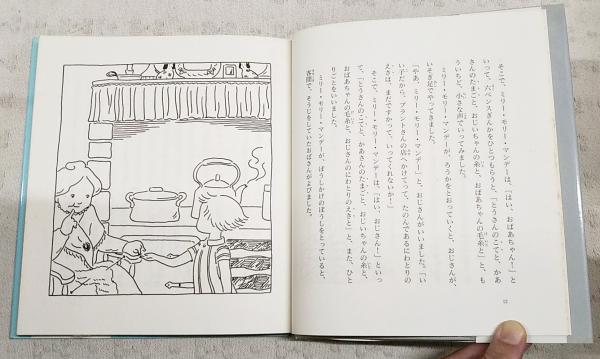 そこで、ミリー・モリー・マンデーは、「はい、おばあちゃん！」と
いって、六ペンスぎんかをひとつもらうと、「とうさんのこてと、かあ
さんのたまごと、おじいちゃんの糸と、おばあちゃんの毛糸と」と、も
ういちど、小さな声でいってみました。
ミリー・モリー・マンデーが、ろうかをとおっていくと、おじさんが、
いそぎ足でやってきました。
「やあ、ミリー・モリー・マンデー」と、おじさんがいいました。「い
い子だから、ブラントさんの店へかけてって、たのんであるにわとりの
えさは、まだですかって、いってくれないか！」
そこで、ミリー・モリー・マンデーは、「はい、おじさん！」といっ
て、「とうさんのこてと、かあさんのたまごと、おじいちゃんの糸と、
おばあちゃんの毛糸と、おじさんのにわとりのえさと」と、また、ひと
りごとをいいました。
ミリー・モリー・マンデーが、ぼうしかけのぼうしをとっていると、
客間で、そうじをしていたおばさんがよびました。
12